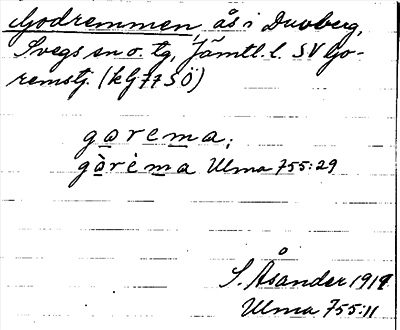 Godremmen, ås i Duvberg,
Svegs sn o. tg, Jämtl. l. SV Go-
remstj. (k bl 77 SÖ)
gorema;
gòrèma Ulma 755:29
S. Åsander 1919
Ulma 755:11